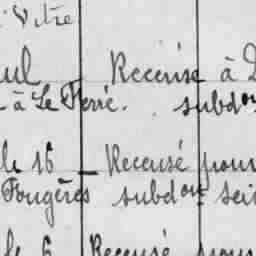 Vitré
ul Recensé à D
à Le Ferré. subdon
le 16 Recensé pour
Fougères subdon sei
le 6 Recensé pour